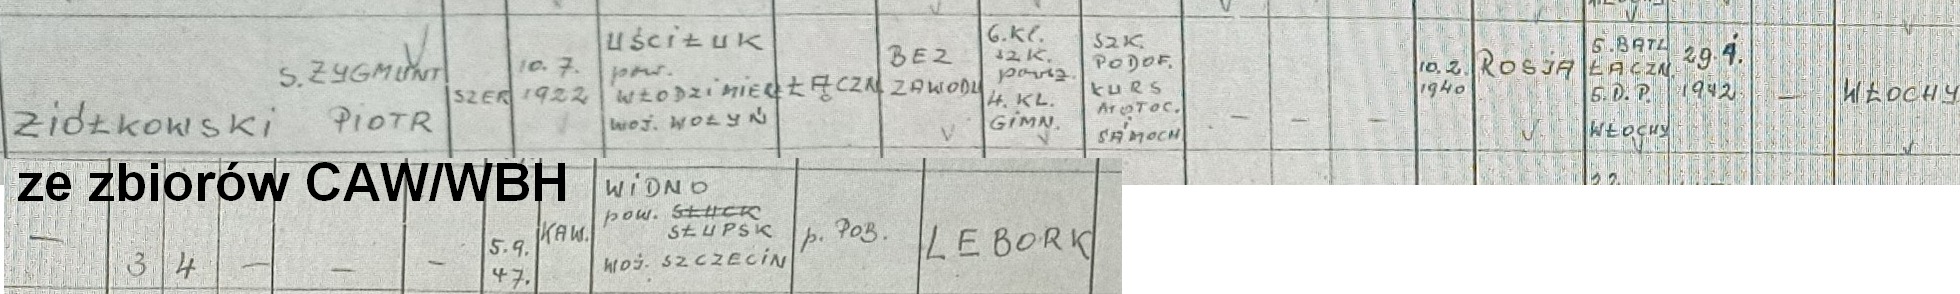 S. ZYGMUNT
Ziółkowski PIOTR
SZER
10. 7.
1922
UŚCIŁUK
pow.
WŁODZIMIERZ
woj. WOŁYŃ
ŁĄCZN
BEZ
ZAWODU
6. Kl.
SZK.
powsz.
4. KL.
GIMN.
SZK.
PODOF.
KURS
MOTOC.
i
SAMOCH
—
—
—
10. 2.
1940
ROSJA
5. BATL
ŁĄCZN.
5. D. P.
WŁOCHY
29. 4.
1942
—
WŁOCHY
ze zbiorów CAW/WBH
—
3
4
—
—
—
5. 9.
47.
KAW.
WIDNO
pow. SŁUCK
SŁUPSK
woj. SZCZECIN
p. POB.
LEBORK